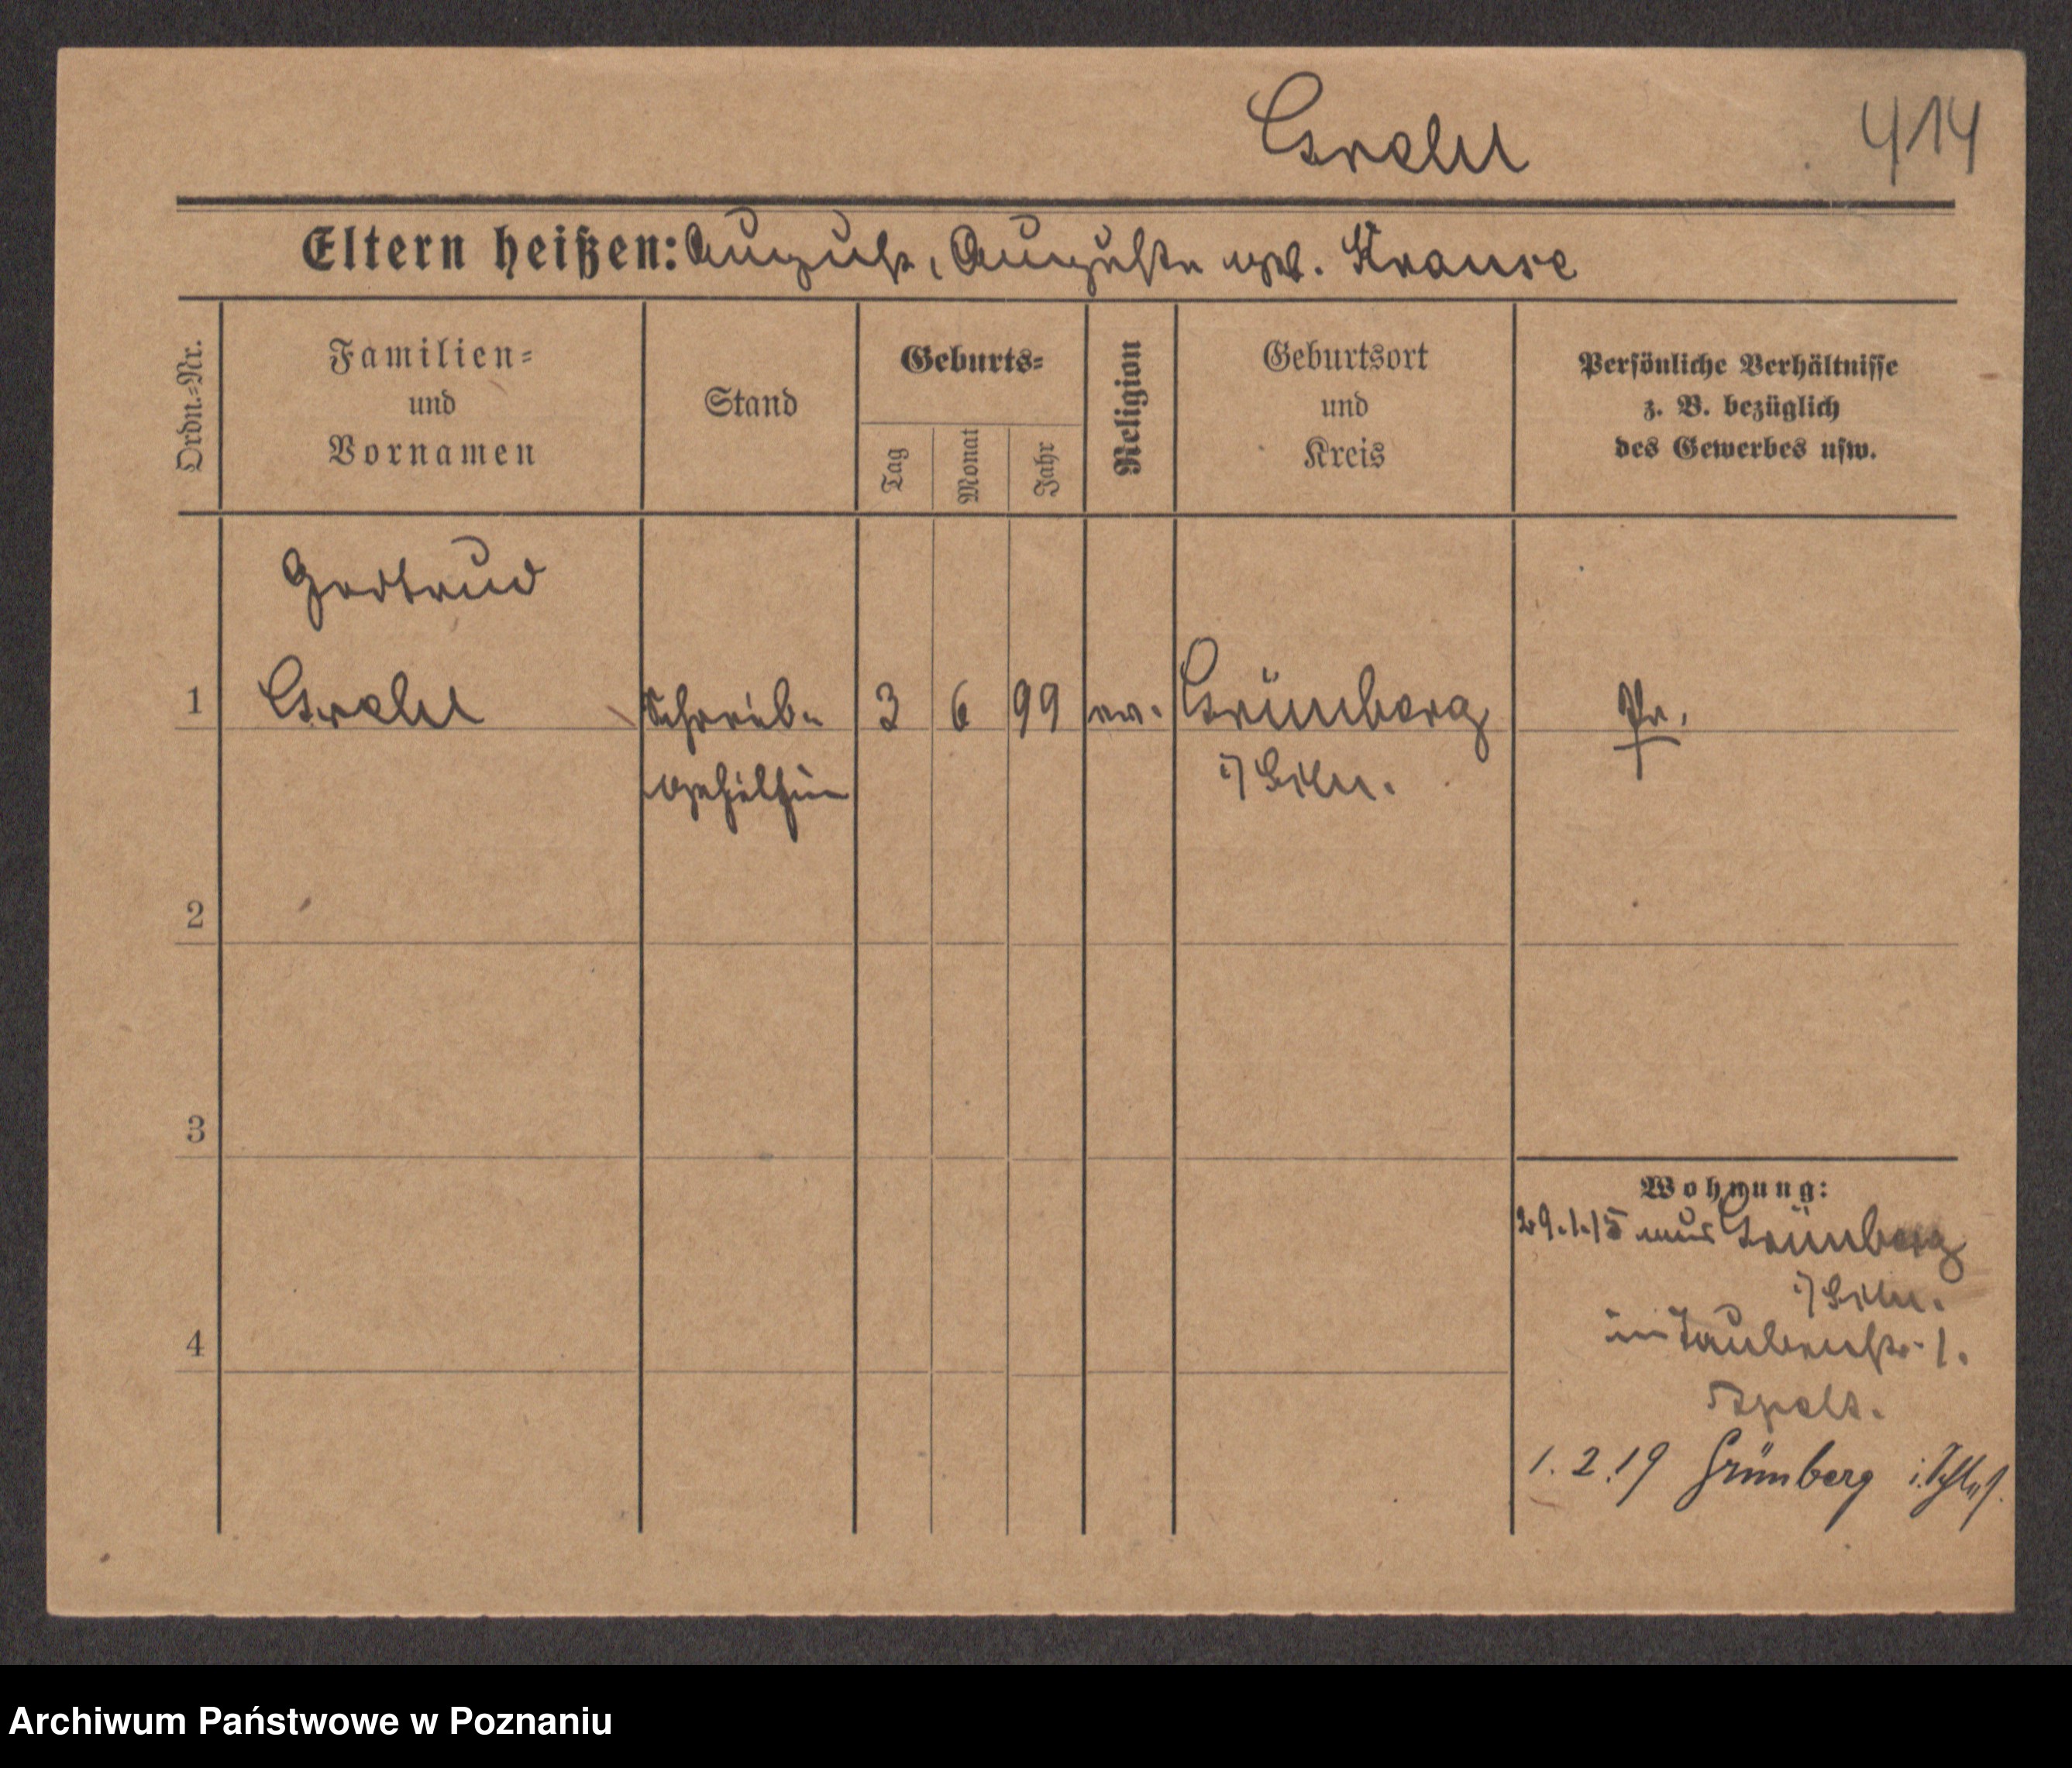 414
Eltern heißen: August, Auguste geb. Krause
Ordn.-Nr.
Familien-
und
Vornamen
Stand
Geburts-
Tag
Monat
Jahr
Religion
Geburtsort
und
Kreis
Persönliche Verhältnisse
z. B. bezüglich
des Gewerbes usw.
Gertrud
1 Schreib- 3 6 99 ev. Grünberg Pr.
gehilfin i/Schles.
2
3
4
Wohnung:
29.1.15 aus Grünberg
i/Schles.
in Taubenstr. 1.
1.2.19 Grünberg i. Schles.
Archiwum Państwowe w Poznaniu